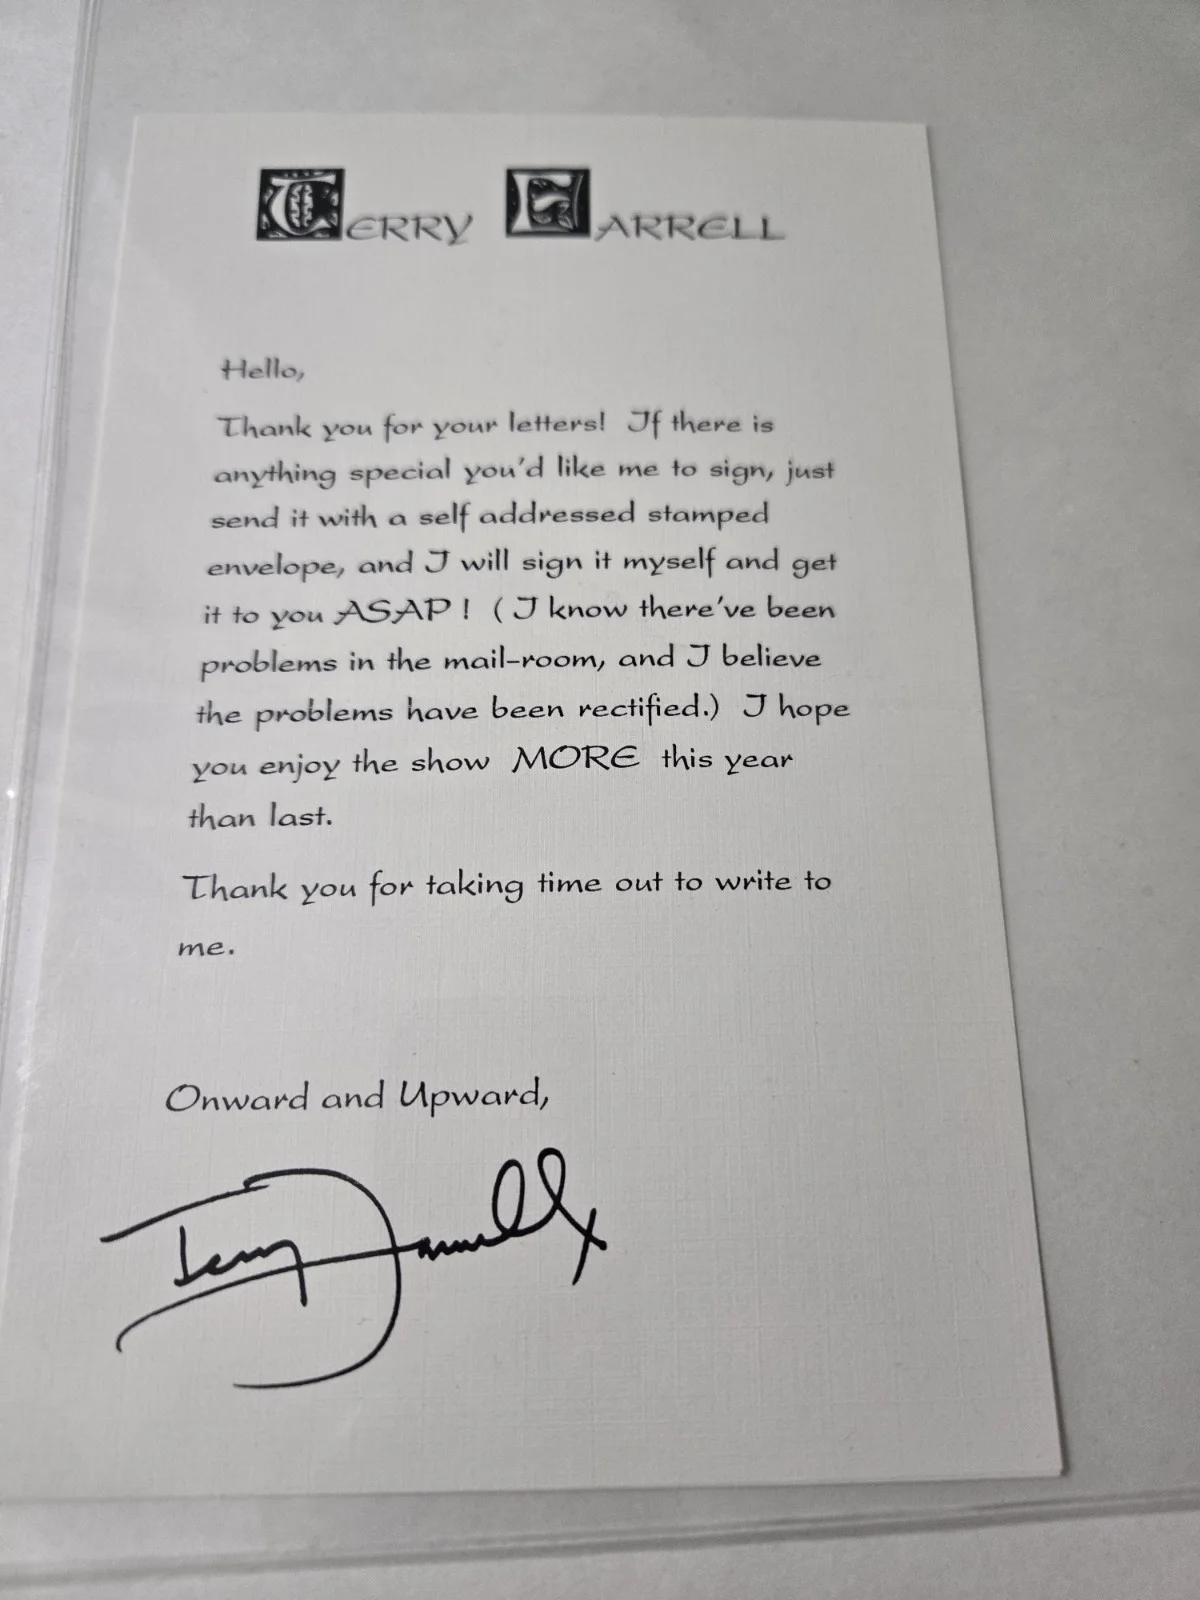 TERRY FARRELL
Hello,
Thank you for your letters! If there is
anything special you'd like me to sign, just
send it with a self addressed stamped
envelope, and I will sign it myself and get
it to you ASAP! (I know there've been
problems in the mail-room, and I believe
the problems have been rectified.) I hope
you enjoy the show MORE this year
than last.
Thank you for taking time out to write to
me.
Onward and Upward,
Terry Farrell x